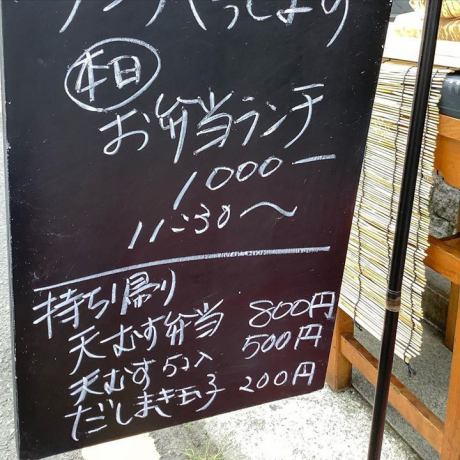 本日
お弁当ランチ
1000ー
11:30〜
持ち帰り
天むす弁当 800円
天むす5コ入 500円
だしまき玉子 200円